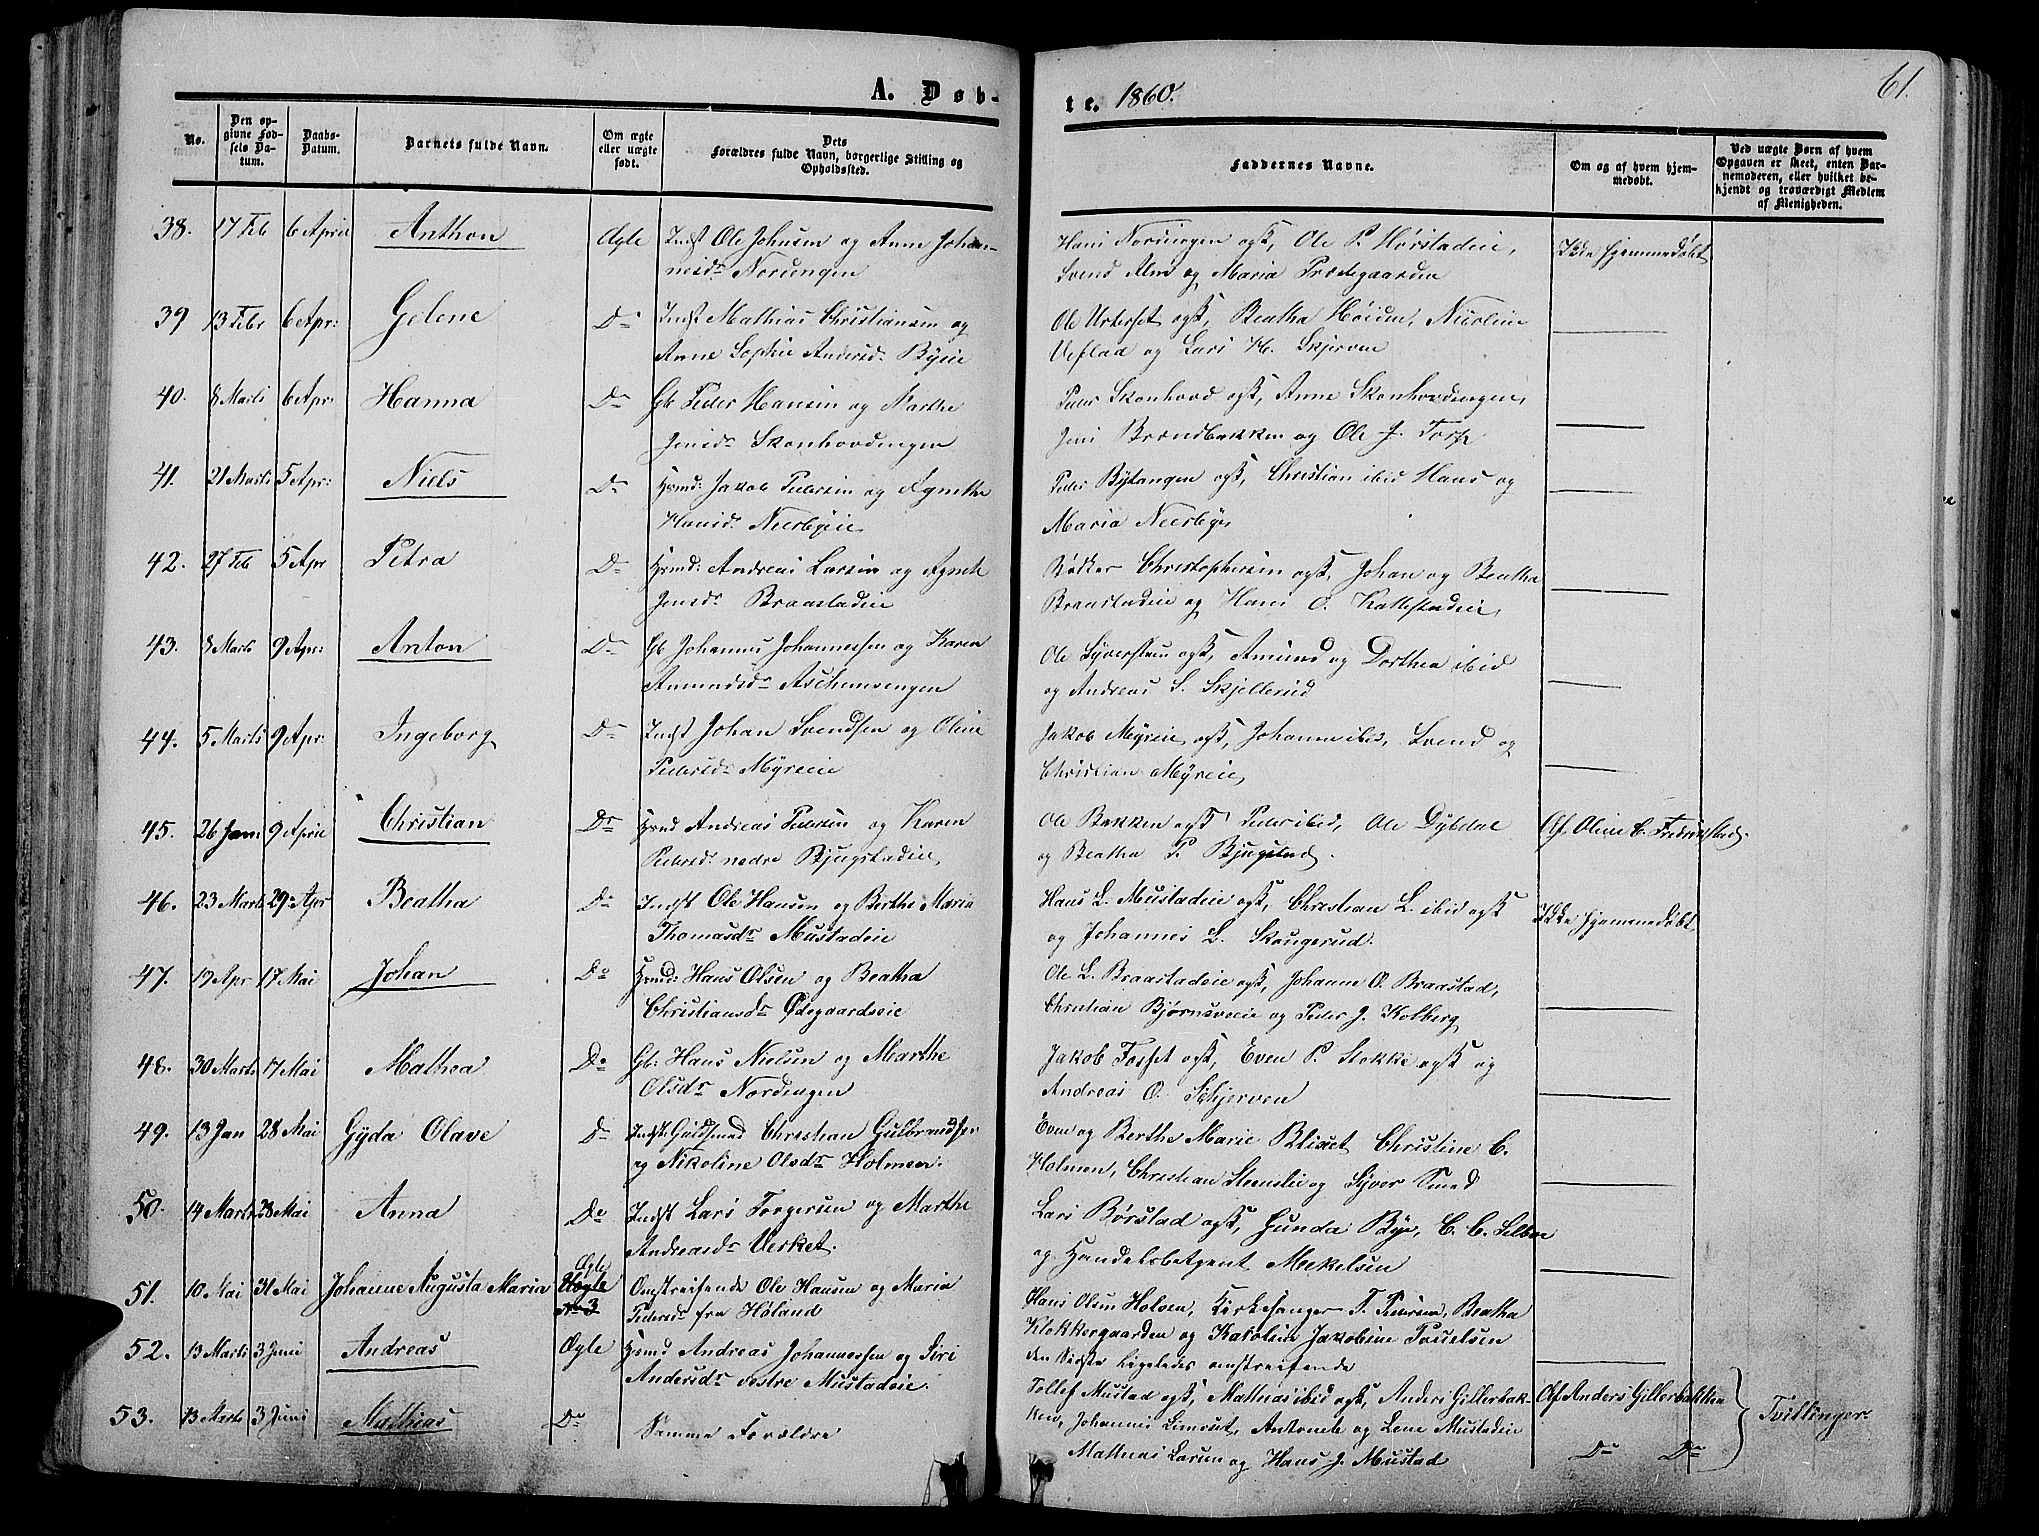 A. Døb-
te. 1860.
61.
No.
Den op-
givne Fød-
sels Da-
tum.
Daabs-
Datum.
Barnets fulde Navn.
Om ægte
eller uægte
født.
Dets
Forældres fulde Navn, borgerlige Stilling og
Opholdssted.
Faddernes Navne.
Om og af hvem hjem-
medøbt.
Ved uægte Børn af hvem
Opgaven er skeet, enten Bar-
nemoderen, eller hvilket be-
kjendt og troværdigt Medlem
af Menigheden.
38. 17 Feb 6 April Anthon Ægte Indst Ole Johnsen og Anne Johan-
nesdr Norungen
Hans Norungen ogsk, Ole P. Hørstadeie, Ikke hjemmedøbt
Svend Alm og Maria Prestegaarden
39 13 Febr 6 Apr: Gelene Do Indst Mathias Christiansen og
Anne Sophie Andersdr Byeie
Ole Urterset ogsk, Beatha Høiden, Nicoline
og Lars H. Skjerven
40. 8 Marts 6 Apr: Hanna Do Gb Peder Hansen og Marthe
Jensdr Skonhovdengen
Peder Skonhovd ogsk, Anne Skonhovdengen,
Jens Brændbakken og Ole J. Torp
41. 21 Marts 5 Apr: Niels Do Hsmd: Jakob Pedersen og Agnethe
Hansdr Neerbyeie
Peder Bytangen ogsk, Christian ibid Hans og
Maria Neerbye
42. 27 Feb 5 Apr Petra Do Hsmd: Andreas Larsen og Agnete
Jensdr Braastadeie
Bødker Christophersen ogsk, Johan og Beatha
Braastadeie og Hans O. Kallestadeie,
43. 8 Marts 9 Apr: Anton Do Gb Johannes Johannessen og Karen
Amundsdr Aschimsengen
Ole Syverstuen ogsk, Amund og Dorthea ibid
og Andreas S. Skjellerud
44. 5 Marts 9 Apr: Ingeborg Do Indst Johan Svendsen og Oline
Pedersdr Myreie
Jakob Myreie ogsk, Johanne ibid, Svend og
Christian Myreie,
45. 26 Jan 9 April Christian Do Hsmd Andreas Pedersen og Karen
Pedersdr nedre Bjugstadeie,
Ole Bakken ogsk Peder ibid, Ole Dybdal Af Oline C. Fredrikstad.
og Beatha P. Bjugstad.
46. 23 Marts 29 Apr Beatha Do Indst Ole Hansen og Berthe Maria
Thomasdr Mustadeie
Hans L. Mustadeie ogsk, Christian L. ibid ogsk Ikke hjemmedøbt
og Johannes L. Skougerud.
47. 19 Apr 17 Mai Johan Do Hsmd: Hans Olsen og Beatha
Christiansdr Ødegaardseie
Ole L. Braastadeie ogsk, Johanne O. Braastad,
Christian Bjørnsveeie og Peder J. Kolberg
48. 30 Marts 17 Mai Mathea Do Gb: Hans Nielsen og Marthe
Olsdr Nordengen
Jakob Fosset ogsk, Even P. Stokke ogsk og
Andreas O. Schjerven
49. 13 Jan 28 Mai Gyda Olave Do Indst: Guldsmed Christian Gulbrandsen
og Nikoline Olsdr Holmen.
Even og Berthe Marie Blisset Christine C.
Holmen, Christian Steenslie og Syver Smed
50. 14 Marts 28 Mai Anna Do Indst Lars Torgersen og Marthe
Andreasdr Verket.
Lars Børstad ogsk, Gunda Bye, C. C. Selboe
og Handelsbetjent Mekelsen
51. 10 Mai 31 Mai Johanne Augusta Maria Ægte
Uægte
No 3
Omstreifende Ole Hansen og Maria
Pedersdr fra Høland
Hans Olsen Holven, Kirkesanger T. Pedersen, Beatha
Klokkergaarden og Karoline Jakobine Poulsen
den Sidste Ligeledes omstreifende
52. 13 Marts 3 Juni Andreas Ægte Hsmd Andreas Johannessen og Siri
Andersdr Vestre Mustadeie.
Tollef Mustad ogsk, Mathias ibid ogsk, Anders Gillerbak- Af Anders Gillerbakken
ken, Johannes Linrud, Antonete og Lene Mustadeie
53. 13 Marts 3 Juni Mathias Do Samme Forældre
Mathias Larsen og Hans J. Mustad Do Do
Tvillinger